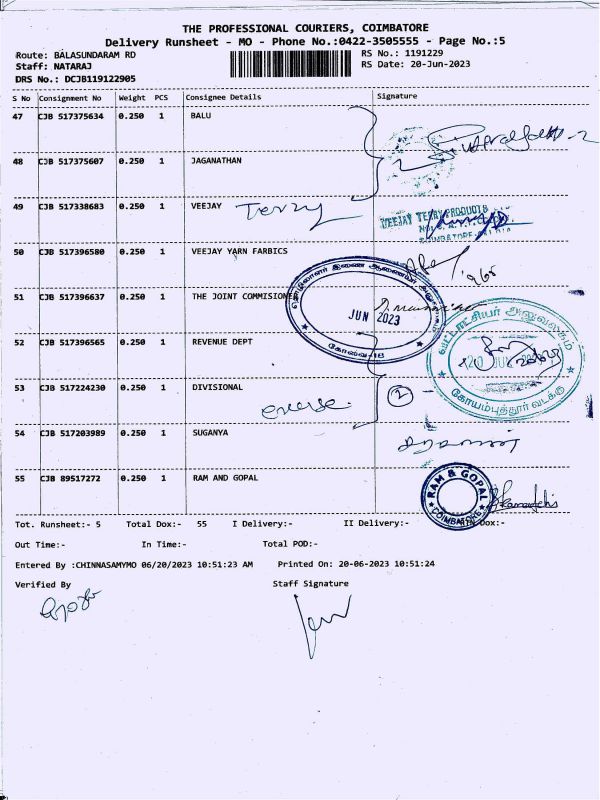 THE PROFESSIONAL COURIERS, COIMBATORE
Delivery Runsheet - MO - Phone No.:0422-3505555 - Page No.:5
Route: BALASUNDARAM RD RS No.: 1191229
Staff: NATARAJ RS Date: 20-Jun-2023
DRS No.: DCJB119122905
S No Consignment No Weight PCS Consignee Details Signature
47 CJB 517375634 0.250 1 BALU
48 CJB 517375607 0.250 1 JAGANATHAN
49 CJB 517338683 0.250 1 VEEJAY Terry VEEJAY TERRY PRODUCTS
50 CJB 517396580 0.250 1 VEEJAY YARN FARBICS
51 CJB 517396637 0.250 1 THE JOINT COMMISIONE
JUN 2023
கோவை-18
52 CJB 517396565 0.250 1 REVENUE DEPT
வட்டாட்சியர் அலுவலகம்
கோயம்புத்தூர் வடக்கு
53 CJB 517224230 0.250 1 DIVISIONAL 2
54 CJB 517203989 0.250 1 SUGANYA
55 CJB 89517272 0.250 1 RAM AND GOPAL RAM & GOPAL COIMBATORE
Tot. Runsheet:- 5 Total Dox:- 55 I Delivery:- II Delivery:- Dox:-
Out Time:- In Time:- Total POD:-
Entered By :CHINNASAMYMO 06/20/2023 10:51:23 AM Printed On: 20-06-2023 10:51:24
Verified By Staff Signature